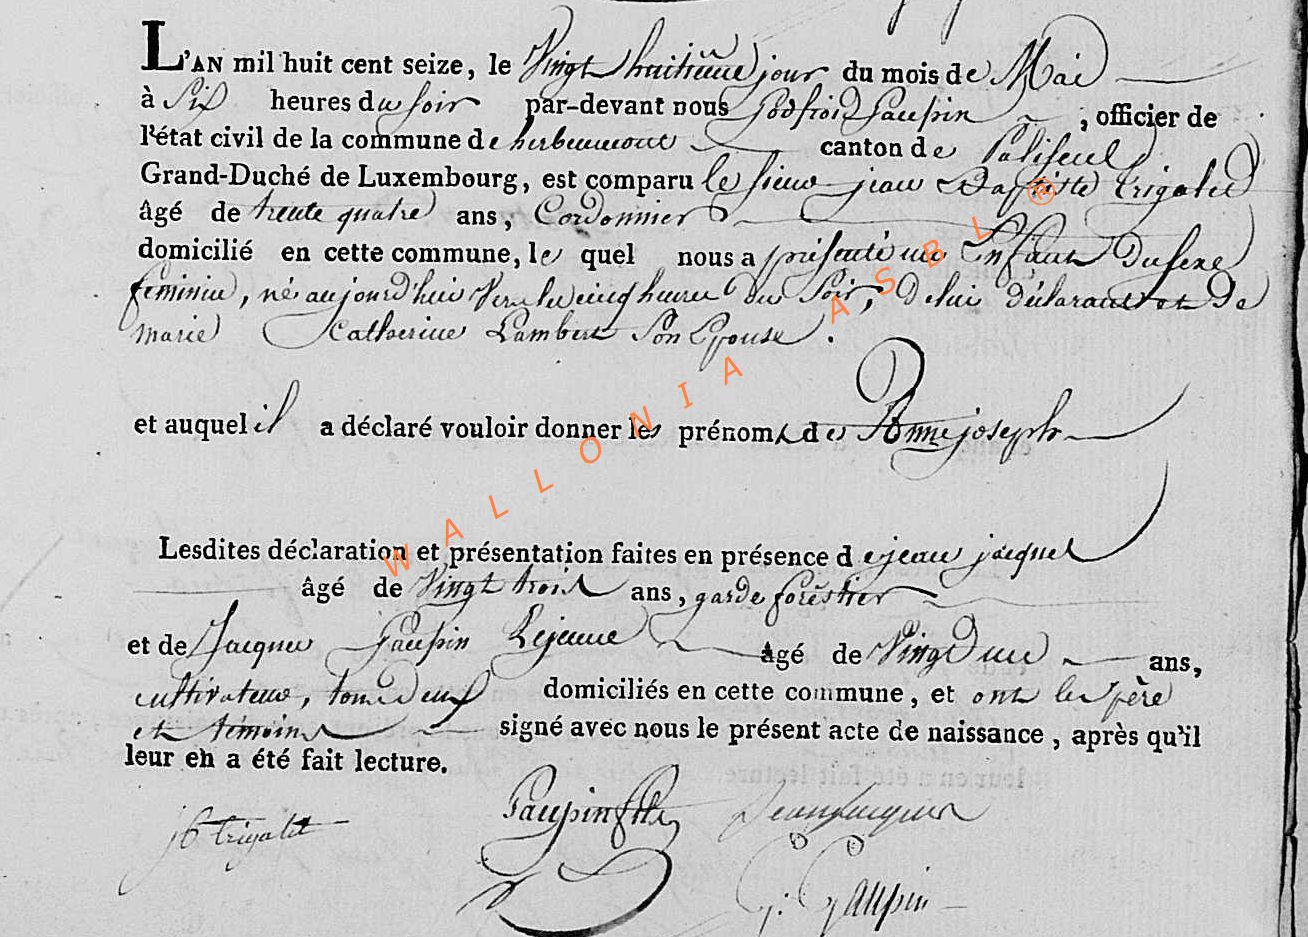 L'AN mil huit cent seize, le Vingt huitieme jour du mois de Mai
à Six heures du soir par-devant nous Godfroid Gaupin, officier de
l'état civil de la commune de herbeumont canton de Paliseul
Grand-Duché de Luxembourg, est comparu le sieur jean Baptiste trigalet
âgé de trente quatre ans, Cordonnier
domicilié en cette commune, le quel nous a présenté un Enfant du sexe
feminin, né aujourd'hui Vers les cinq heures du Soir, de lui déclarant et de
marie Catherine Lambert Son Epouse.
et auquel il a déclaré vouloir donner les prénoms de Anne joseph
Lesdites déclaration et présentation faites en présence de jean jacques
âgé de Vingt trois ans, garde forêstier
et de Jacques Gaupin Lejeune âgé de Vingt un ans,
cultivateur, tous deux domiciliés en cette commune, et ont les père
et témoins signé avec nous le présent acte de naissance, après qu'il
leur en a été fait lecture.
jb trigalet Gaupin fils Jean Jacques
G: Gaupin
WALLONIA ASBL ®